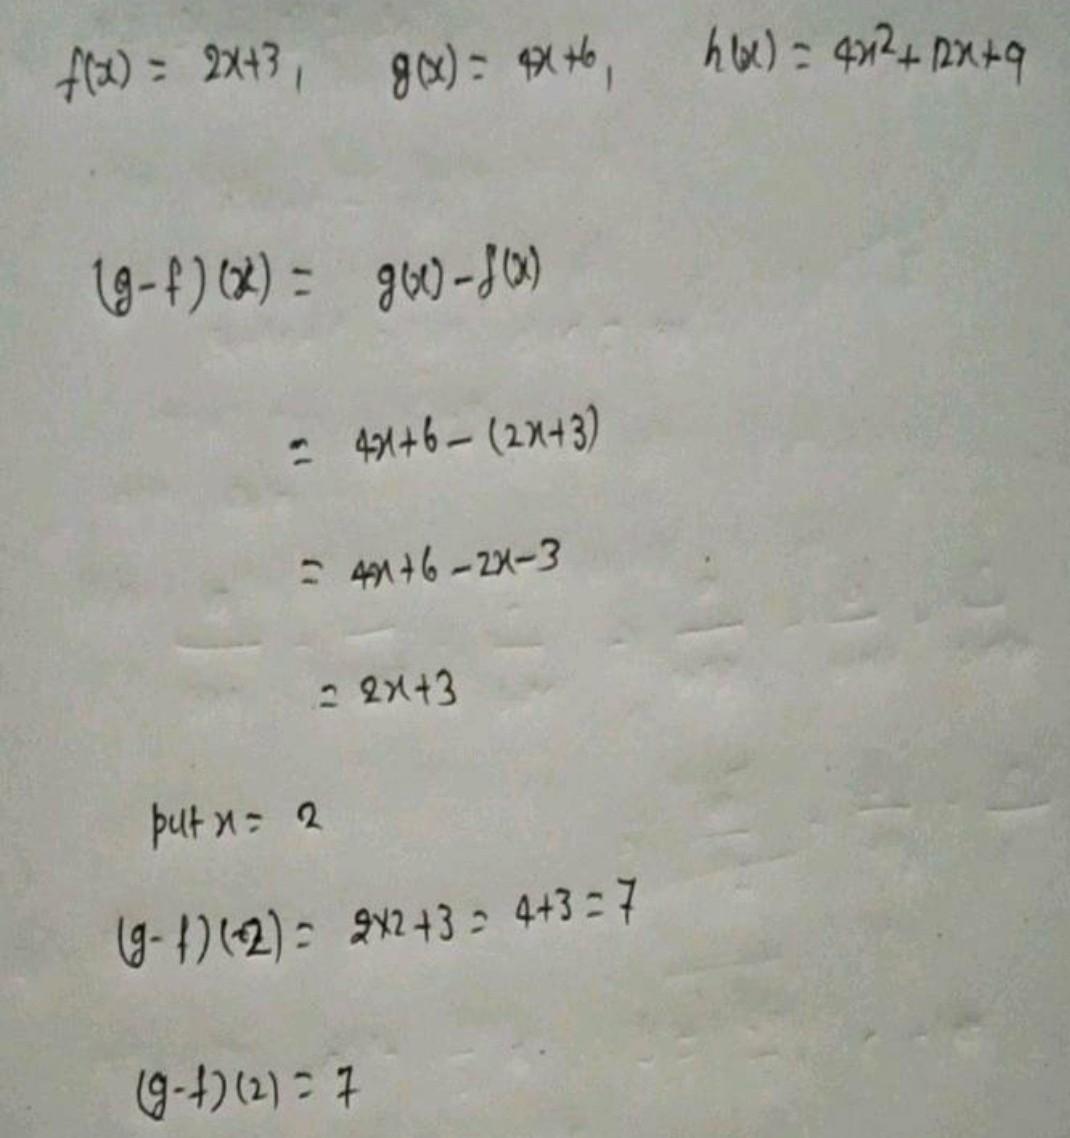 f(x) = 2x+3, g(x) = 4x+6, h(x) = 4x²+12x+9
(g-f)(x) = g(x)-f(x)
= 4x+6-(2x+3)
= 4x+6-2x-3
= 2x+3
put x = 2
(g-f)(2) = 2×2+3 = 4+3 = 7
(g-f)(2) = 7